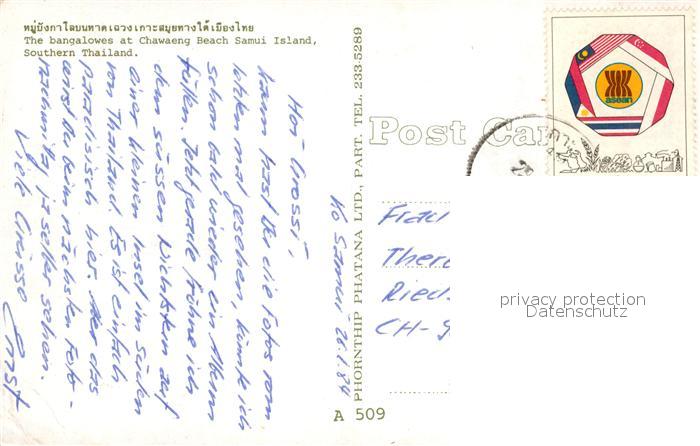 หมู่บังกาโลบนหาดเฉวงเกาะสมุยทางใต้เมืองไทย
The bangalowes at Chawaeng Beach Samui Island,
Southern Thailand.
Hoi Grossi,
kaum hast du die Fotos vom
letzten mal gesehen, könnte ich
schon bald wieder ein Album
füllen. Jetzt gerade fröhne ich
dem süssen Nichtstun auf
einer kleinen Insel im Süden
von Thailand. Es ist einfach
paradisisch hier. Aber das
wirst du beim nächsten Foto-
ja selber sehen.
Viele Grüsse
Ernst
Ko Samui 26.1.84
PHORNTHIP PHATANA LTD., PART. TEL. 233-5289
A 509
Post Car
asean
Frau
Ther
Ried
CH-9
privacy protection
Datenschutz